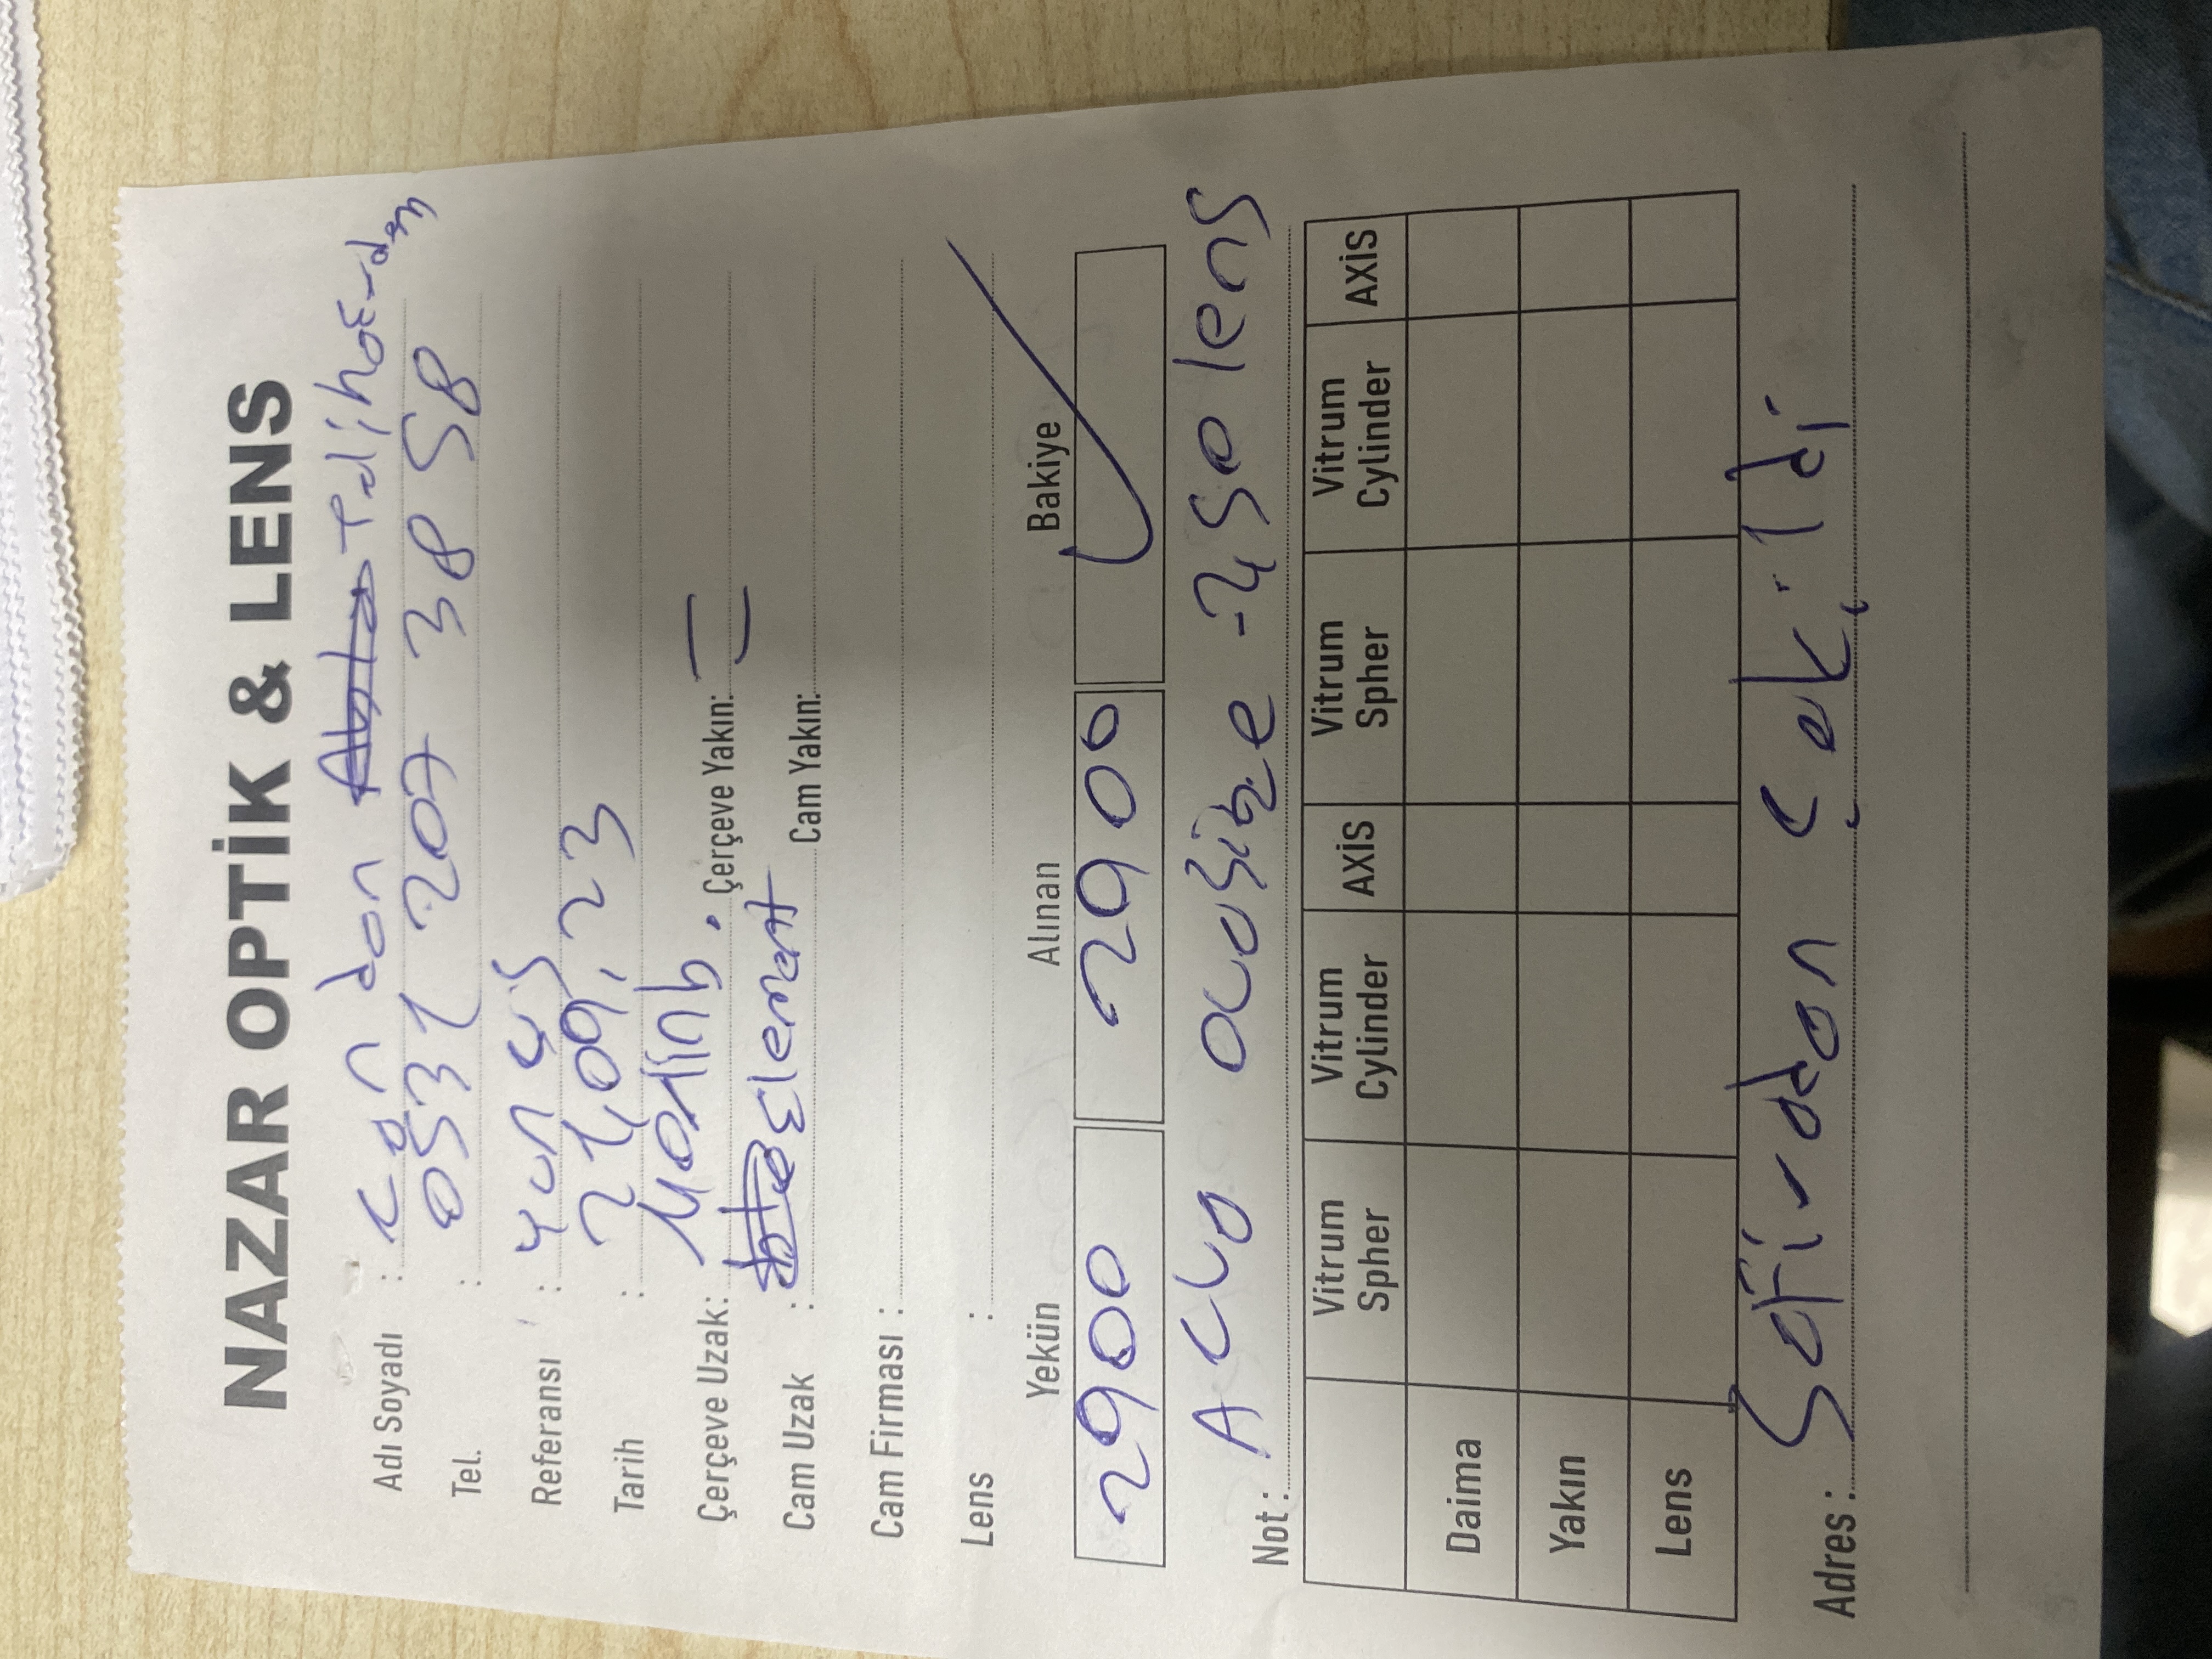 NAZAR OPTİK & LENS
Adı Soyadı : Candan Meliha Erdem
Tel. : 0531 207 38 58
Referansı : Yunus
Tarih : 21,09,23
Çerçeve Uzak: . Çerçeve Yakın: =
Cam Uzak : Element Cam Yakın:
Cam Firması :
Lens :
Yekün Alınan Bakiye
2900 2900 ✓
Not : lens
Vitrum Spher Vitrum Cylinder AXİS Vitrum Spher Vitrum Cylinder AXİS
Daima
Yakın
Lens
Adres : Safiradan Çekildi